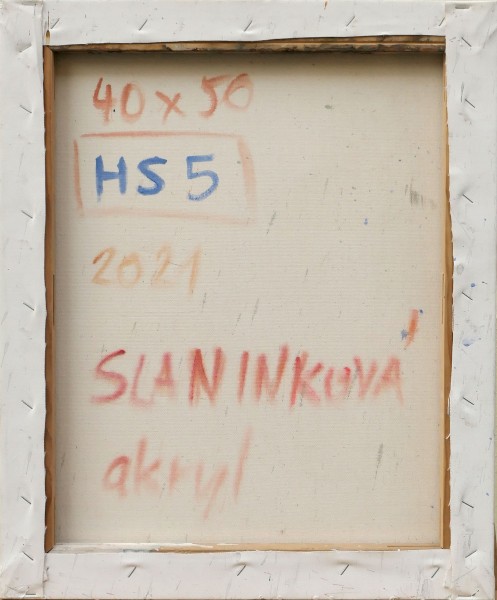 40 x 50
HS 5
2021
SLANINKOVÁ
akryl